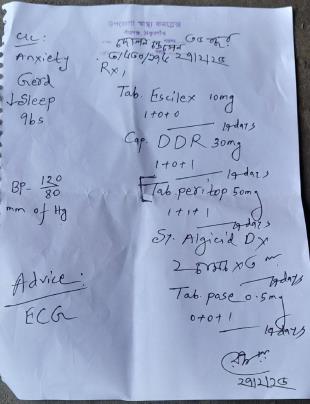 উপজেলা স্বাস্থ্য কমপ্লেক্স
C/C:
Anxiety
Gerd
↓Sleep
9bs
BP- 120/80
mm of Hg
Advice:
ECG
২৯/২/২৫
Rx,
Tab. Escilex 10mg
1+0+0
14days
Cap. DDR 30mg
1+0+1
14days
Tab. peritop 50mg
1+1+1
14days
Sy. Algicid DX
২ চামচ x ৩
14days
Tab. pase 0.5mg
0+0+1
14days
২৯/২/২৫